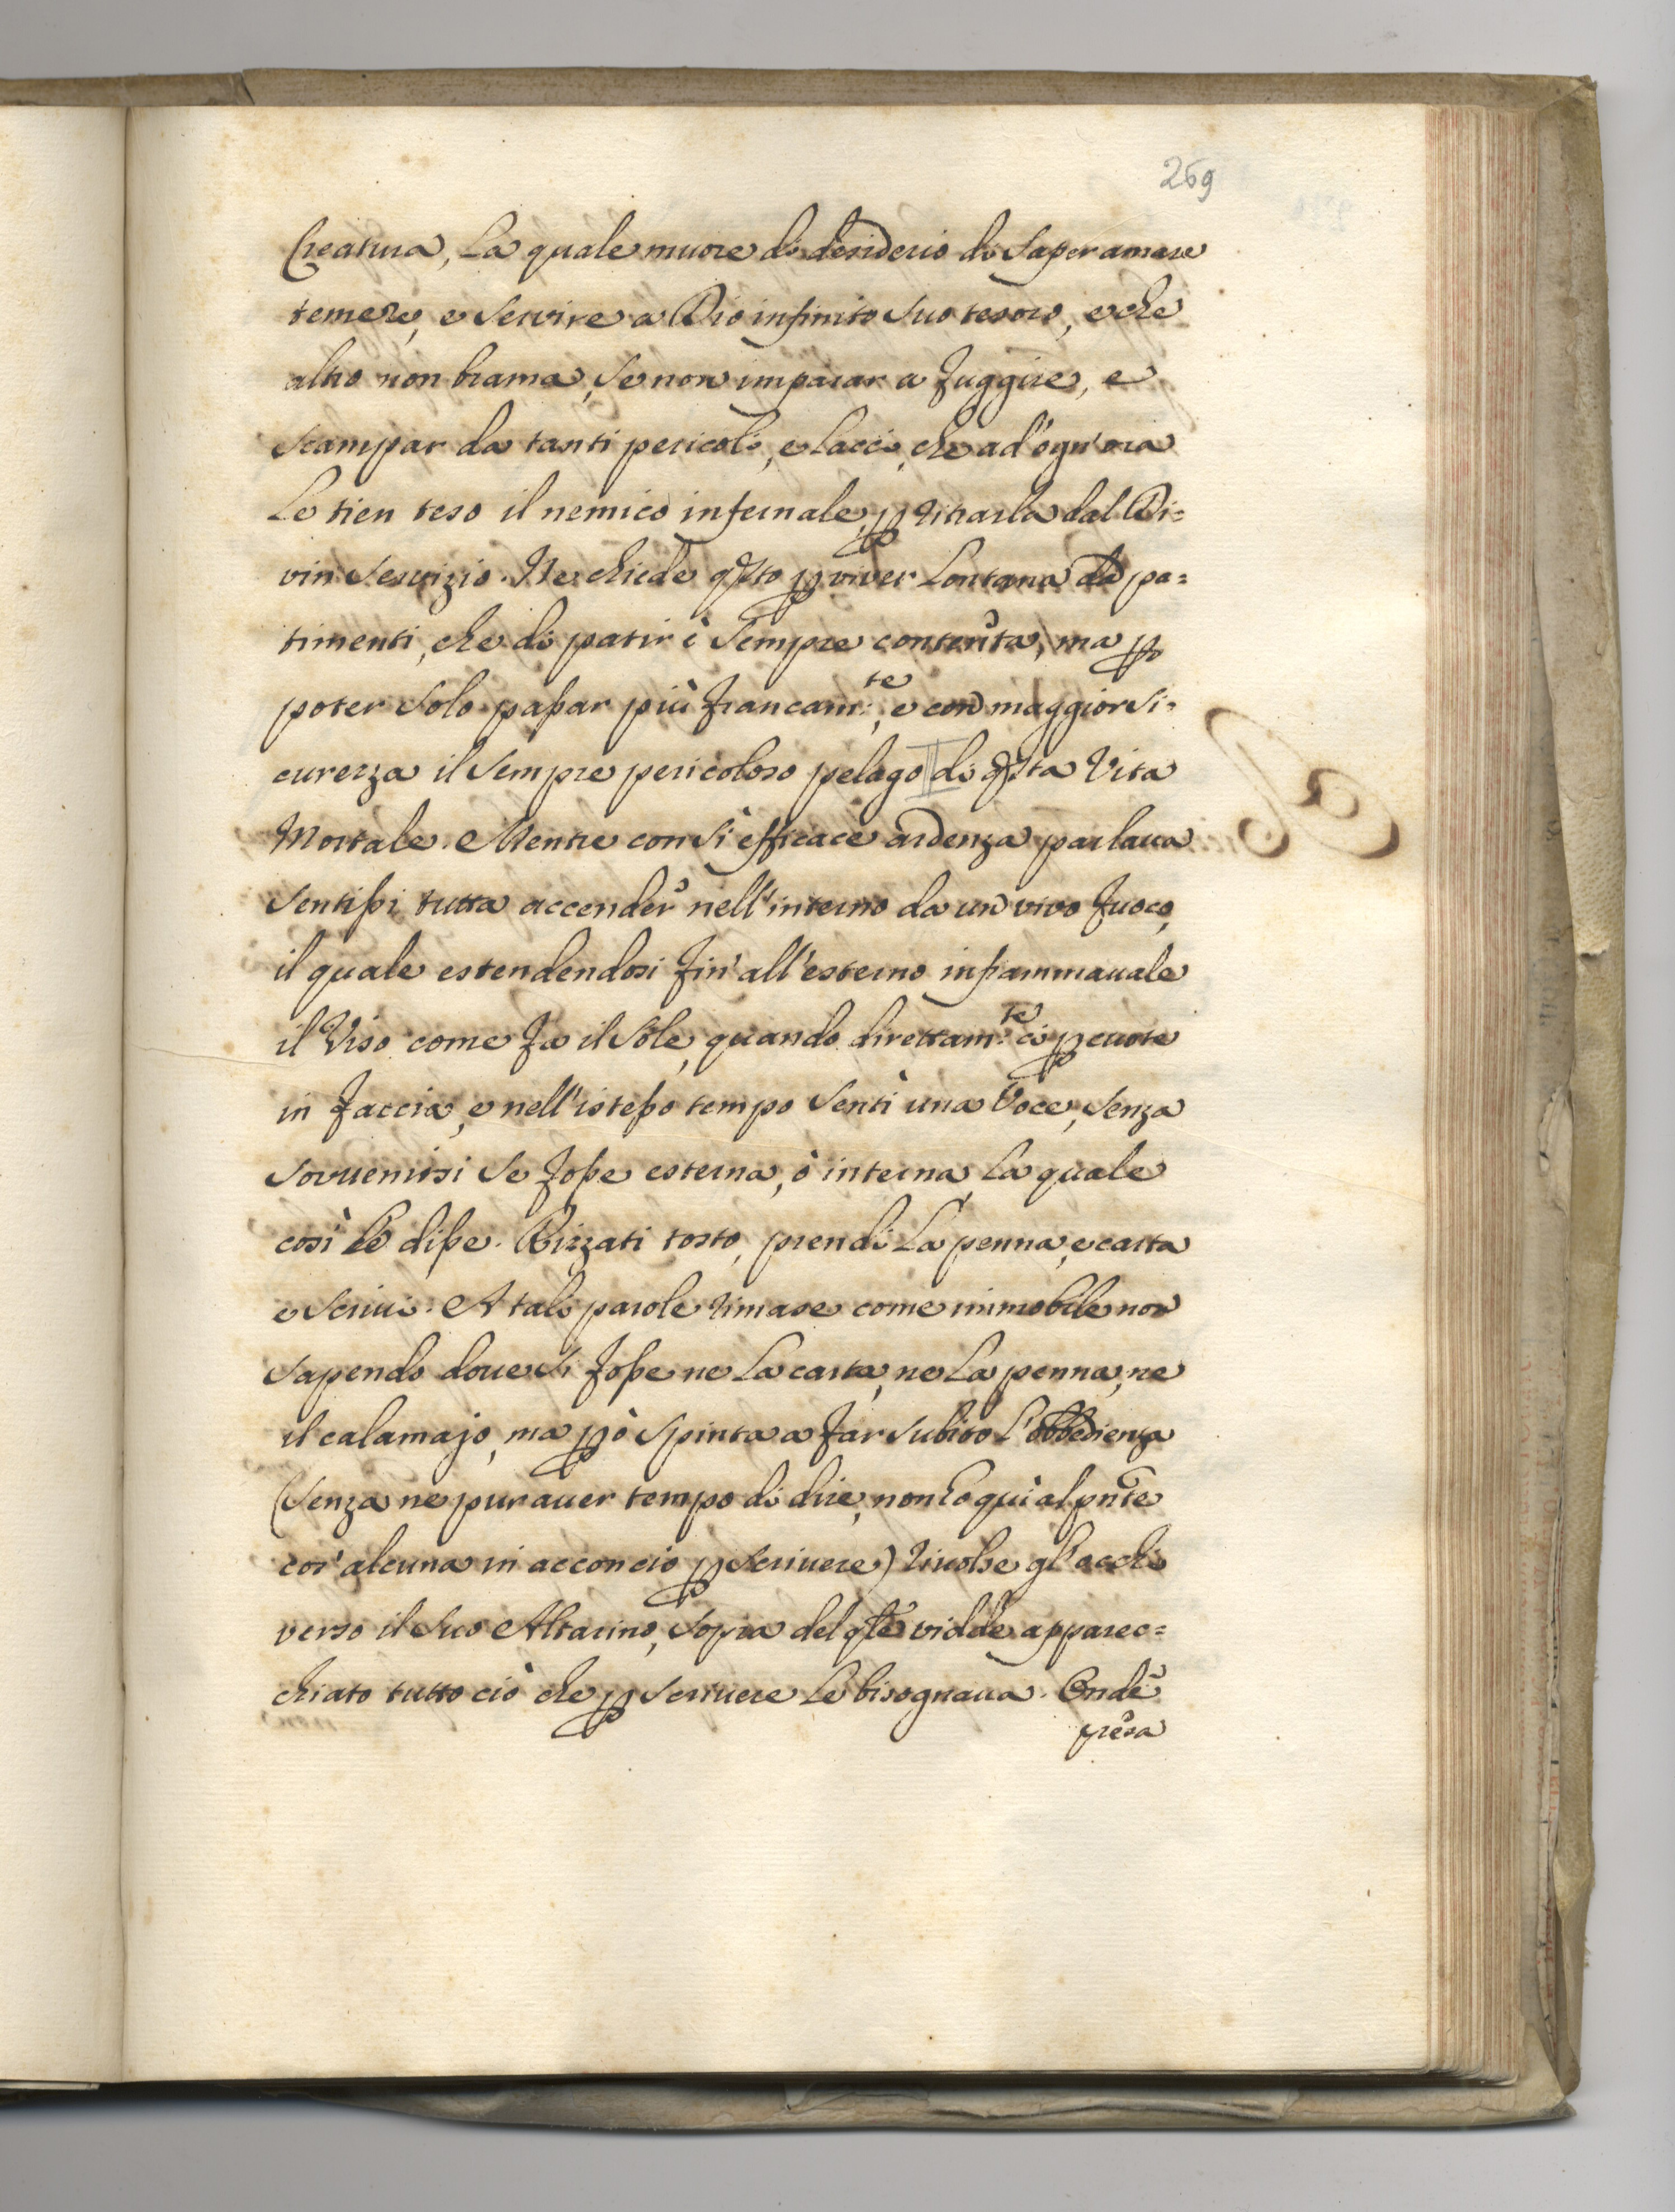 269
Creatura, La quale muore di desiderio di Saper amare
temere, e Servire a Dio infinito Suo tesoro, e che
altro non brama, Se non imparar a fuggire, e
Scampar da tanti pericoli, e Lacci, che ad'ogn'ora
Le tien teso il nemico infernale, p ritrarla dal Di=
vin Servizio. Ne chiede qsto p viver Lontana da pa=
timenti, che di patir è Sempre contenta, ma p
poter Solo passar più francam:te, e con maggior Si=
curezza il Sempre pericoloso pelago di qsta Vita
Mortale. Mentre con Sì efficace ardenza parlaua
Sentissi tutta accender nell'interno da un vivo fuoco,
il quale estendendosi fin'all'esterno infiammauale
il Viso come fa il Sole, quando direttam:te ci pcuote
in faccia, e nell'istesso tempo Sentì una Voce, Senza
Sovuenirsi Se fosse esterna, ò interna, La quale
così Le disse. Rizzati tosto, prendi La penna, e carta
e Scriui. A tali parole rimase come immobile non
Sapendo doue Si fosse ne La carta, ne La penna, ne
il calamajo, ma pò Spinta a far Subito L'obbedienza
(Senza ne pur auer tempo di dire, non ho quì al pnte
cos'alcuna in acconcio p Scriuere) riuolse gl'occhi
verso il Suo Altarino, Sopra del qle vidde apparec=
chiato tutto ciò che p Scriuere Le bisognaua. Onde
presa